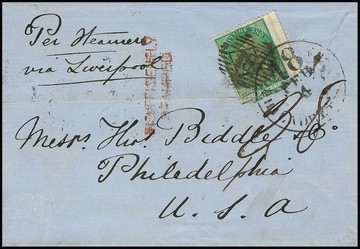 Per Steamer
via Liverpool
INSUFFICIENTLY
STAMPED
ONE SHILLING
Messrs Thos Biddle & Co
Philadelphia
U. S. A